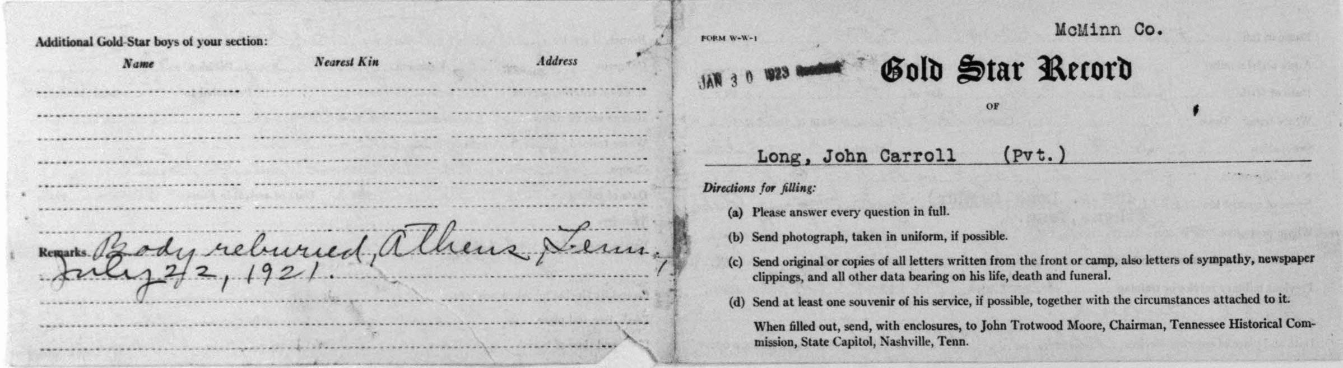 Additional Gold-Star boys of your section:
Name Nearest Kin Address
Remarks. Body reburied, Athens, Tenn.,
July 22, 1921.
FORM W-W-1
McMinn Co.
JAN 30 1923
Gold Star Record
OF
Long, John Carroll (Pvt.)
Directions for filling:
(a) Please answer every question in full.
(b) Send photograph, taken in uniform, if possible.
(c) Send original or copies of all letters written from the front or camp, also letters of sympathy, newspaper
clippings, and all other data bearing on his life, death and funeral.
(d) Send at least one souvenir of his service, if possible, together with the circumstances attached to it.
When filled out, send, with enclosures, to John Trotwood Moore, Chairman, Tennessee Historical Com-
mission, State Capitol, Nashville, Tenn.